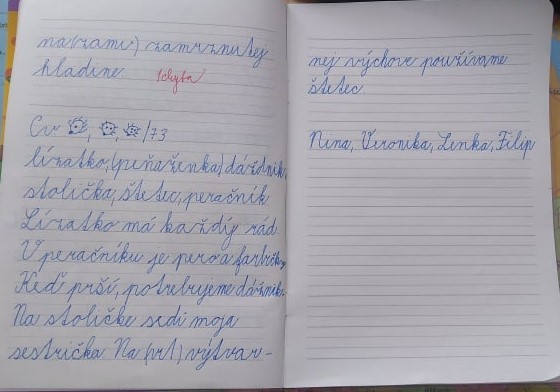 na(zami) zamrznutej
hladine 1chyba
Cv , , /73
lízatko, (peňaženka) dáždnik,
stolička, štetec, peračník
Lízatko má každý rád.
V peračníku je pero a farbičky.
Keď prší, potrebujeme dáždnik.
Na stoličke sedí moja
sestrička. Na (vrl) výtvar-
nej výchove používame
štetec.
Nina, Veronika, Lenka, Filip